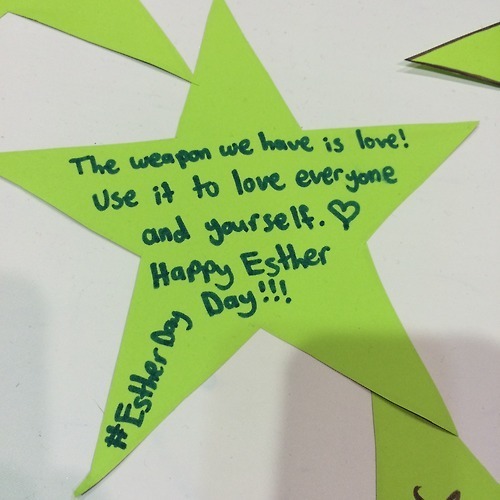 The weapon we have is love!
Use it to love everyone
and yourself. ♡
Happy Esther
Day!!!
#Esther Day